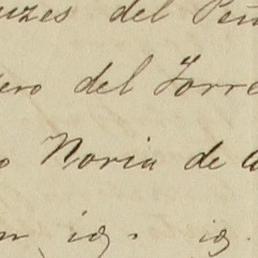 uzes del Peñ
ero del Torre
o Noria de a
n id. id.